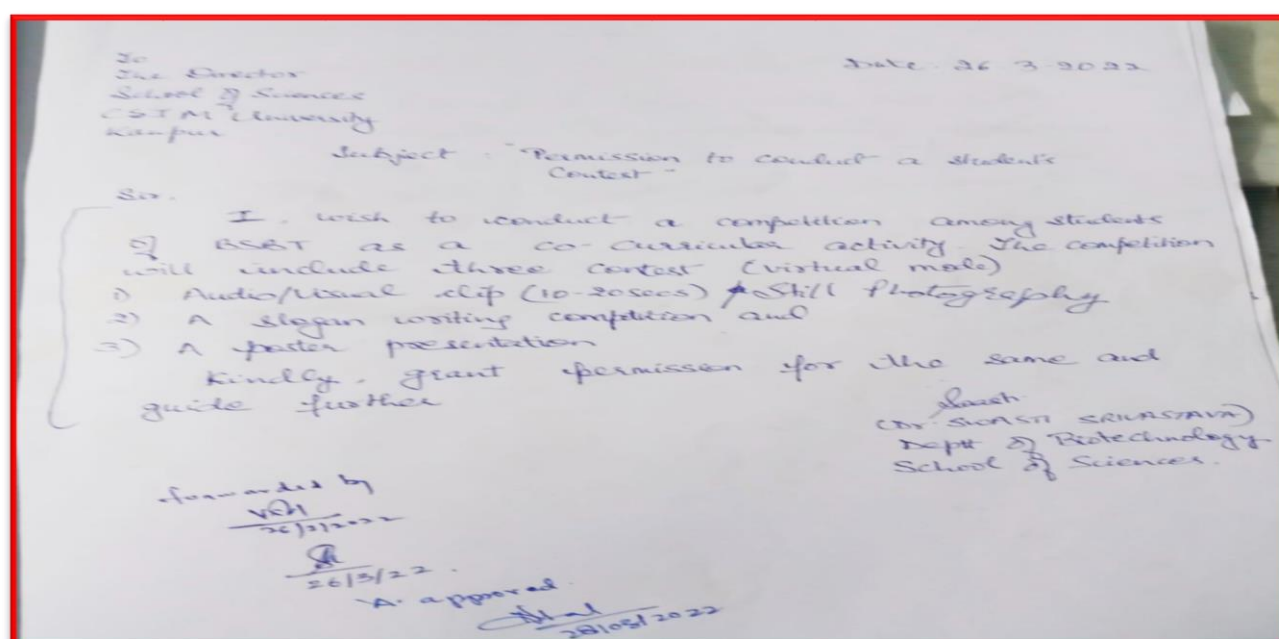 To
The Director
School of Sciences
CSJM University
Kanpur
Date. 26 3 2022
Subject : "Permission to conduct a student's
Contest"
Sir.
I wish to conduct a competition among students
of BSBT as a co-curricular activity. The competition
will include three contest (virtual mode)
1) Audio/visual clip (10-20secs) Still Photography
2) A slogan writing competition and
3) A poster presentation
Kindly grant permission for the same and
guide further
(Dr. SWASTI SRIVASTAVA)
Deptt of Biotechnology
School of Sciences.
forwarded by
26/3/2022
26/3/22.
"A" approved
28/03/2022